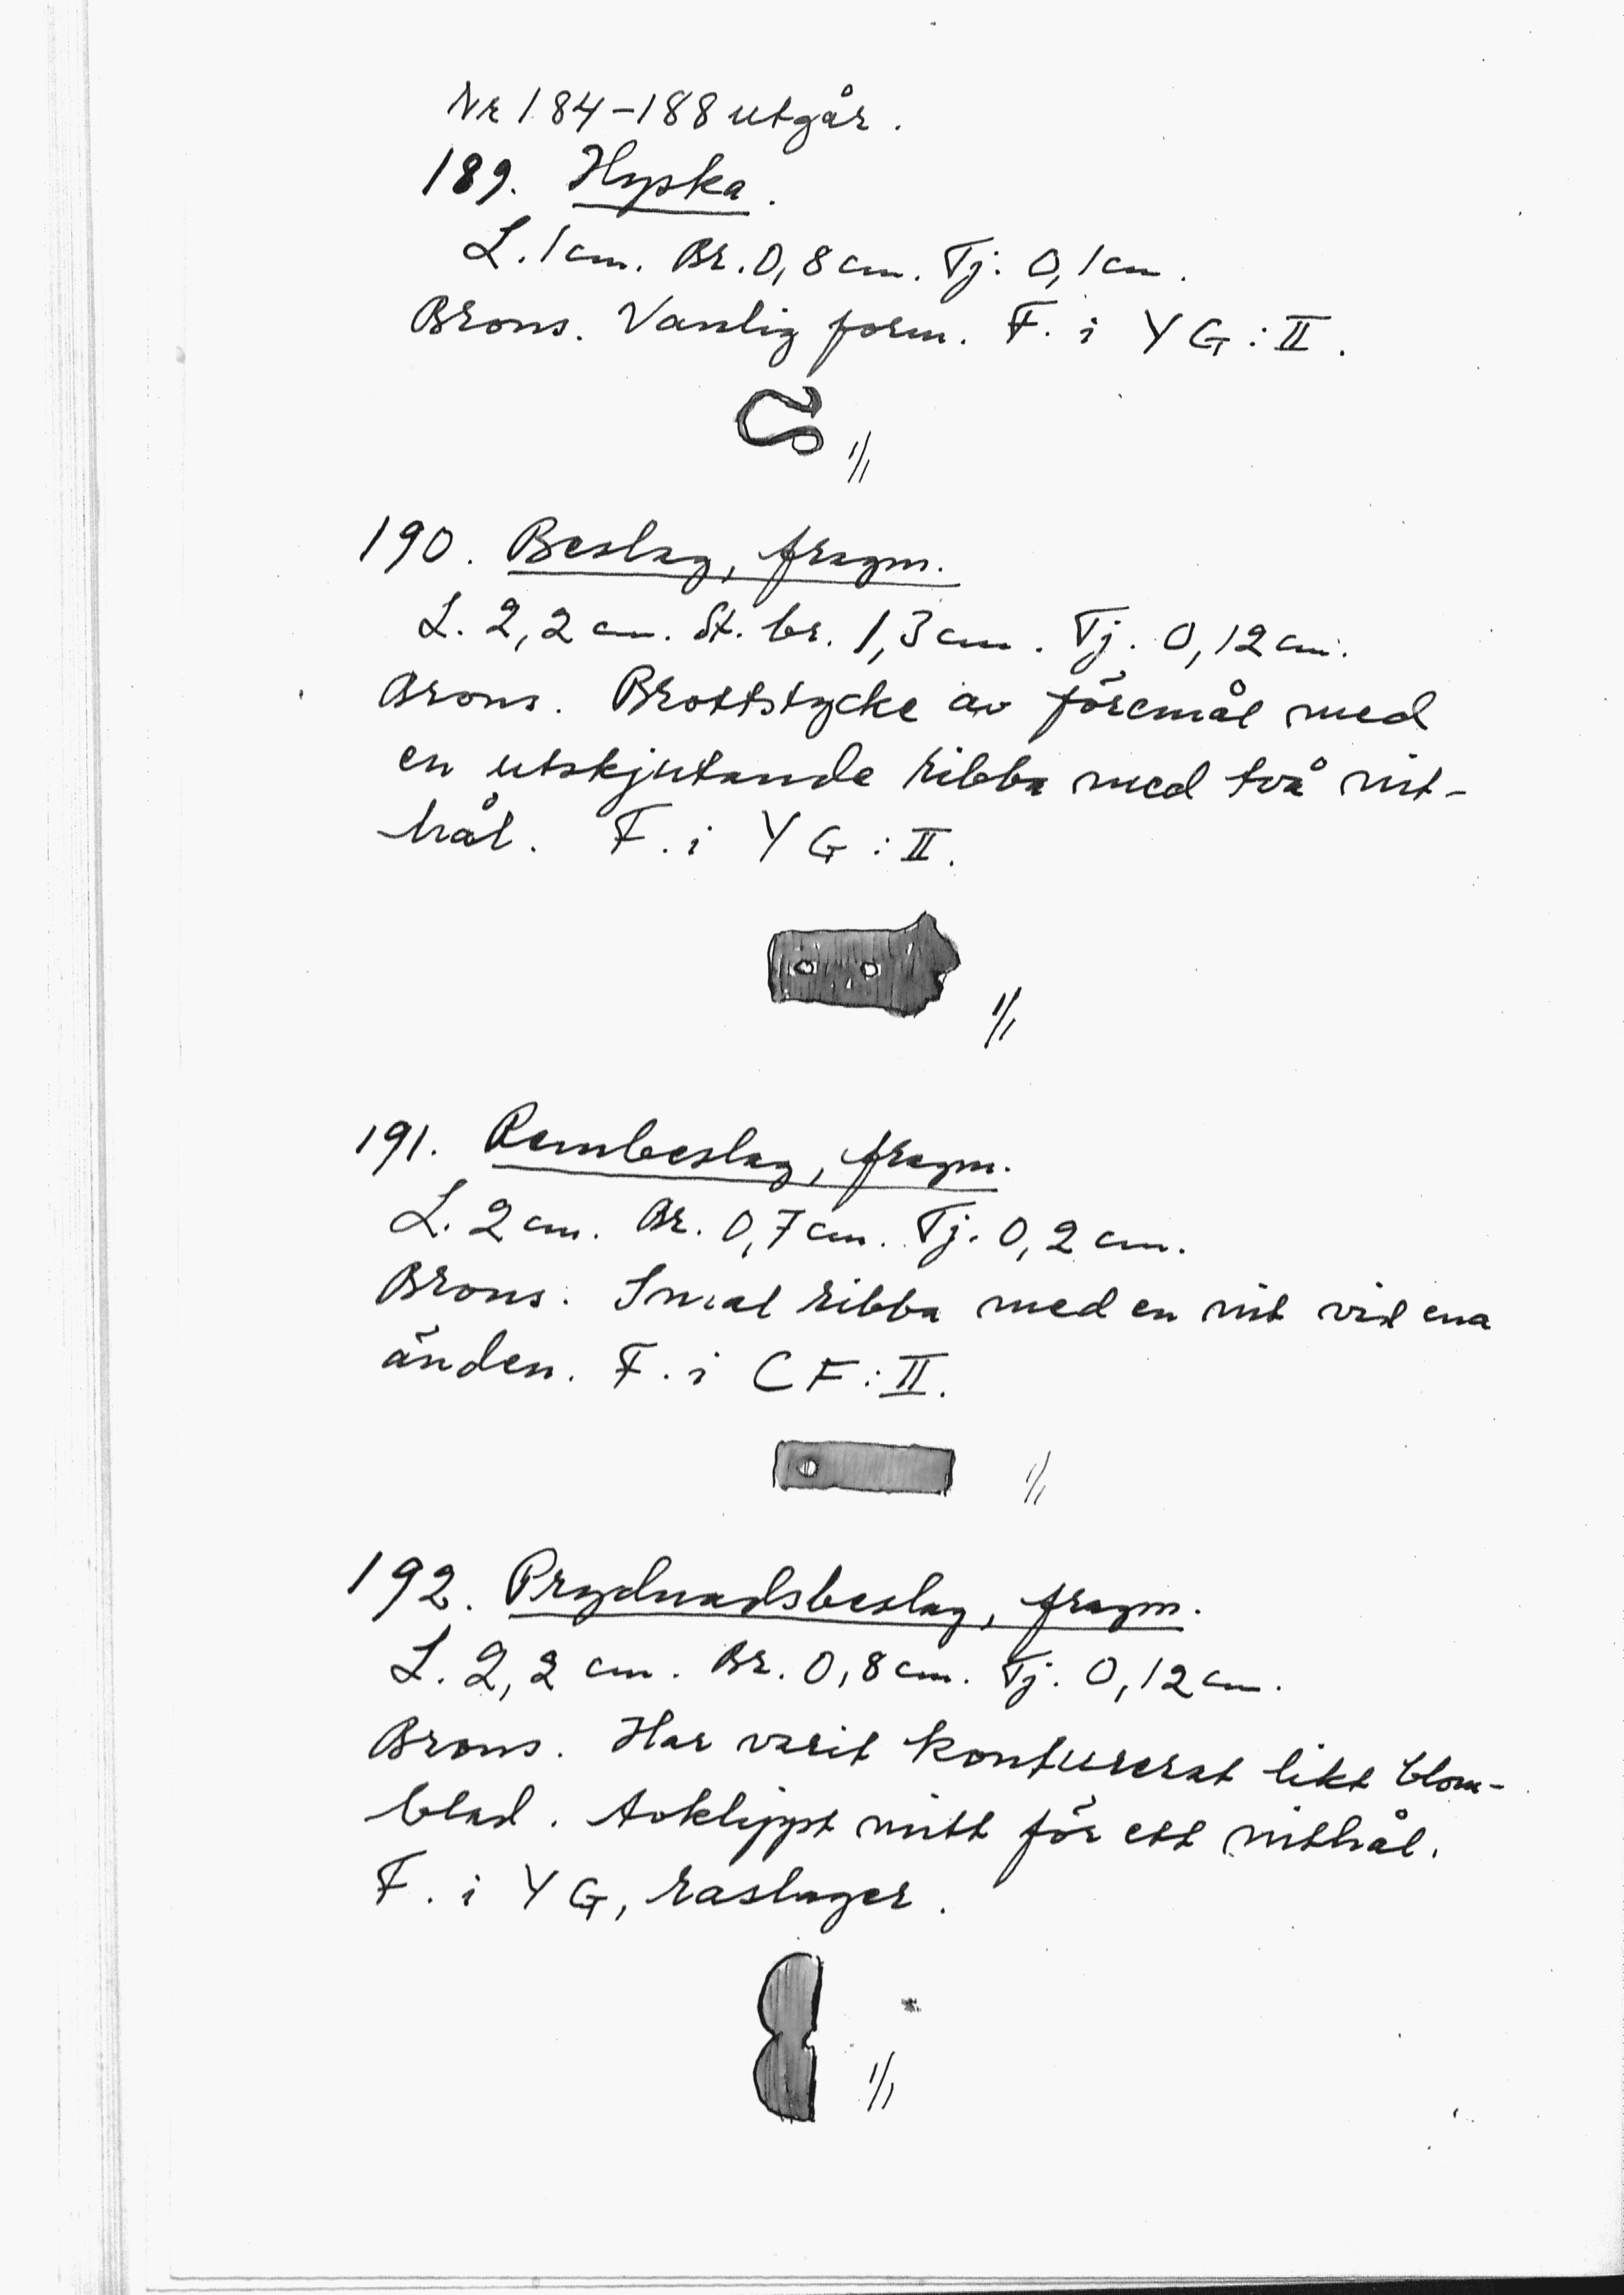 Nr 184-188 utgår.
189. Hyska.
L. 1 cm. Br. 0,8 cm. Tj. 0,1 cm.
Brons. Vanlig form. F. i YG:II.
1/1
190. Beslag, fragm.
L. 2,2 cm. St. br. 1,3 cm. Tj. 0,12 cm.
Brons. Brottstycke av föremål med
en utskjutande ribba med två nit-
hål. F. i YG:II.
1/1
191. Rembeslag, fragm.
L. 2 cm. Br. 0,7 cm. Tj. 0,2 cm.
Brons. Smal ribba med en nit vid ena
änden. F. i CF:II.
1/1
192. Prydnadsbeslag, fragm.
L. 2,2 cm. Br. 0,8 cm. Tj. 0,12 cm.
Brons. Har varit konturerat likt blom-
blad. Avklippt mitt för ett nithål.
F. i YG, raslager.
1/1